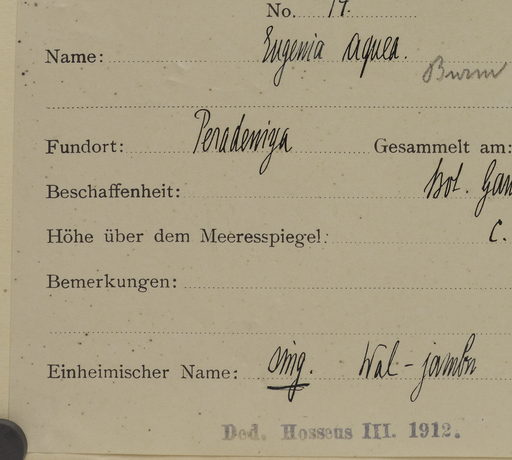 No. 19.
Name: Eugenia aquea.
Burm
Fundort: Peradeniya Gesammelt am:
Beschaffenheit: bot. Gar
Höhe über dem Meeresspiegel: C.
Bemerkungen:
Einheimischer Name: sing. Wal-jambu
Ded. Hosseus III. 1912.